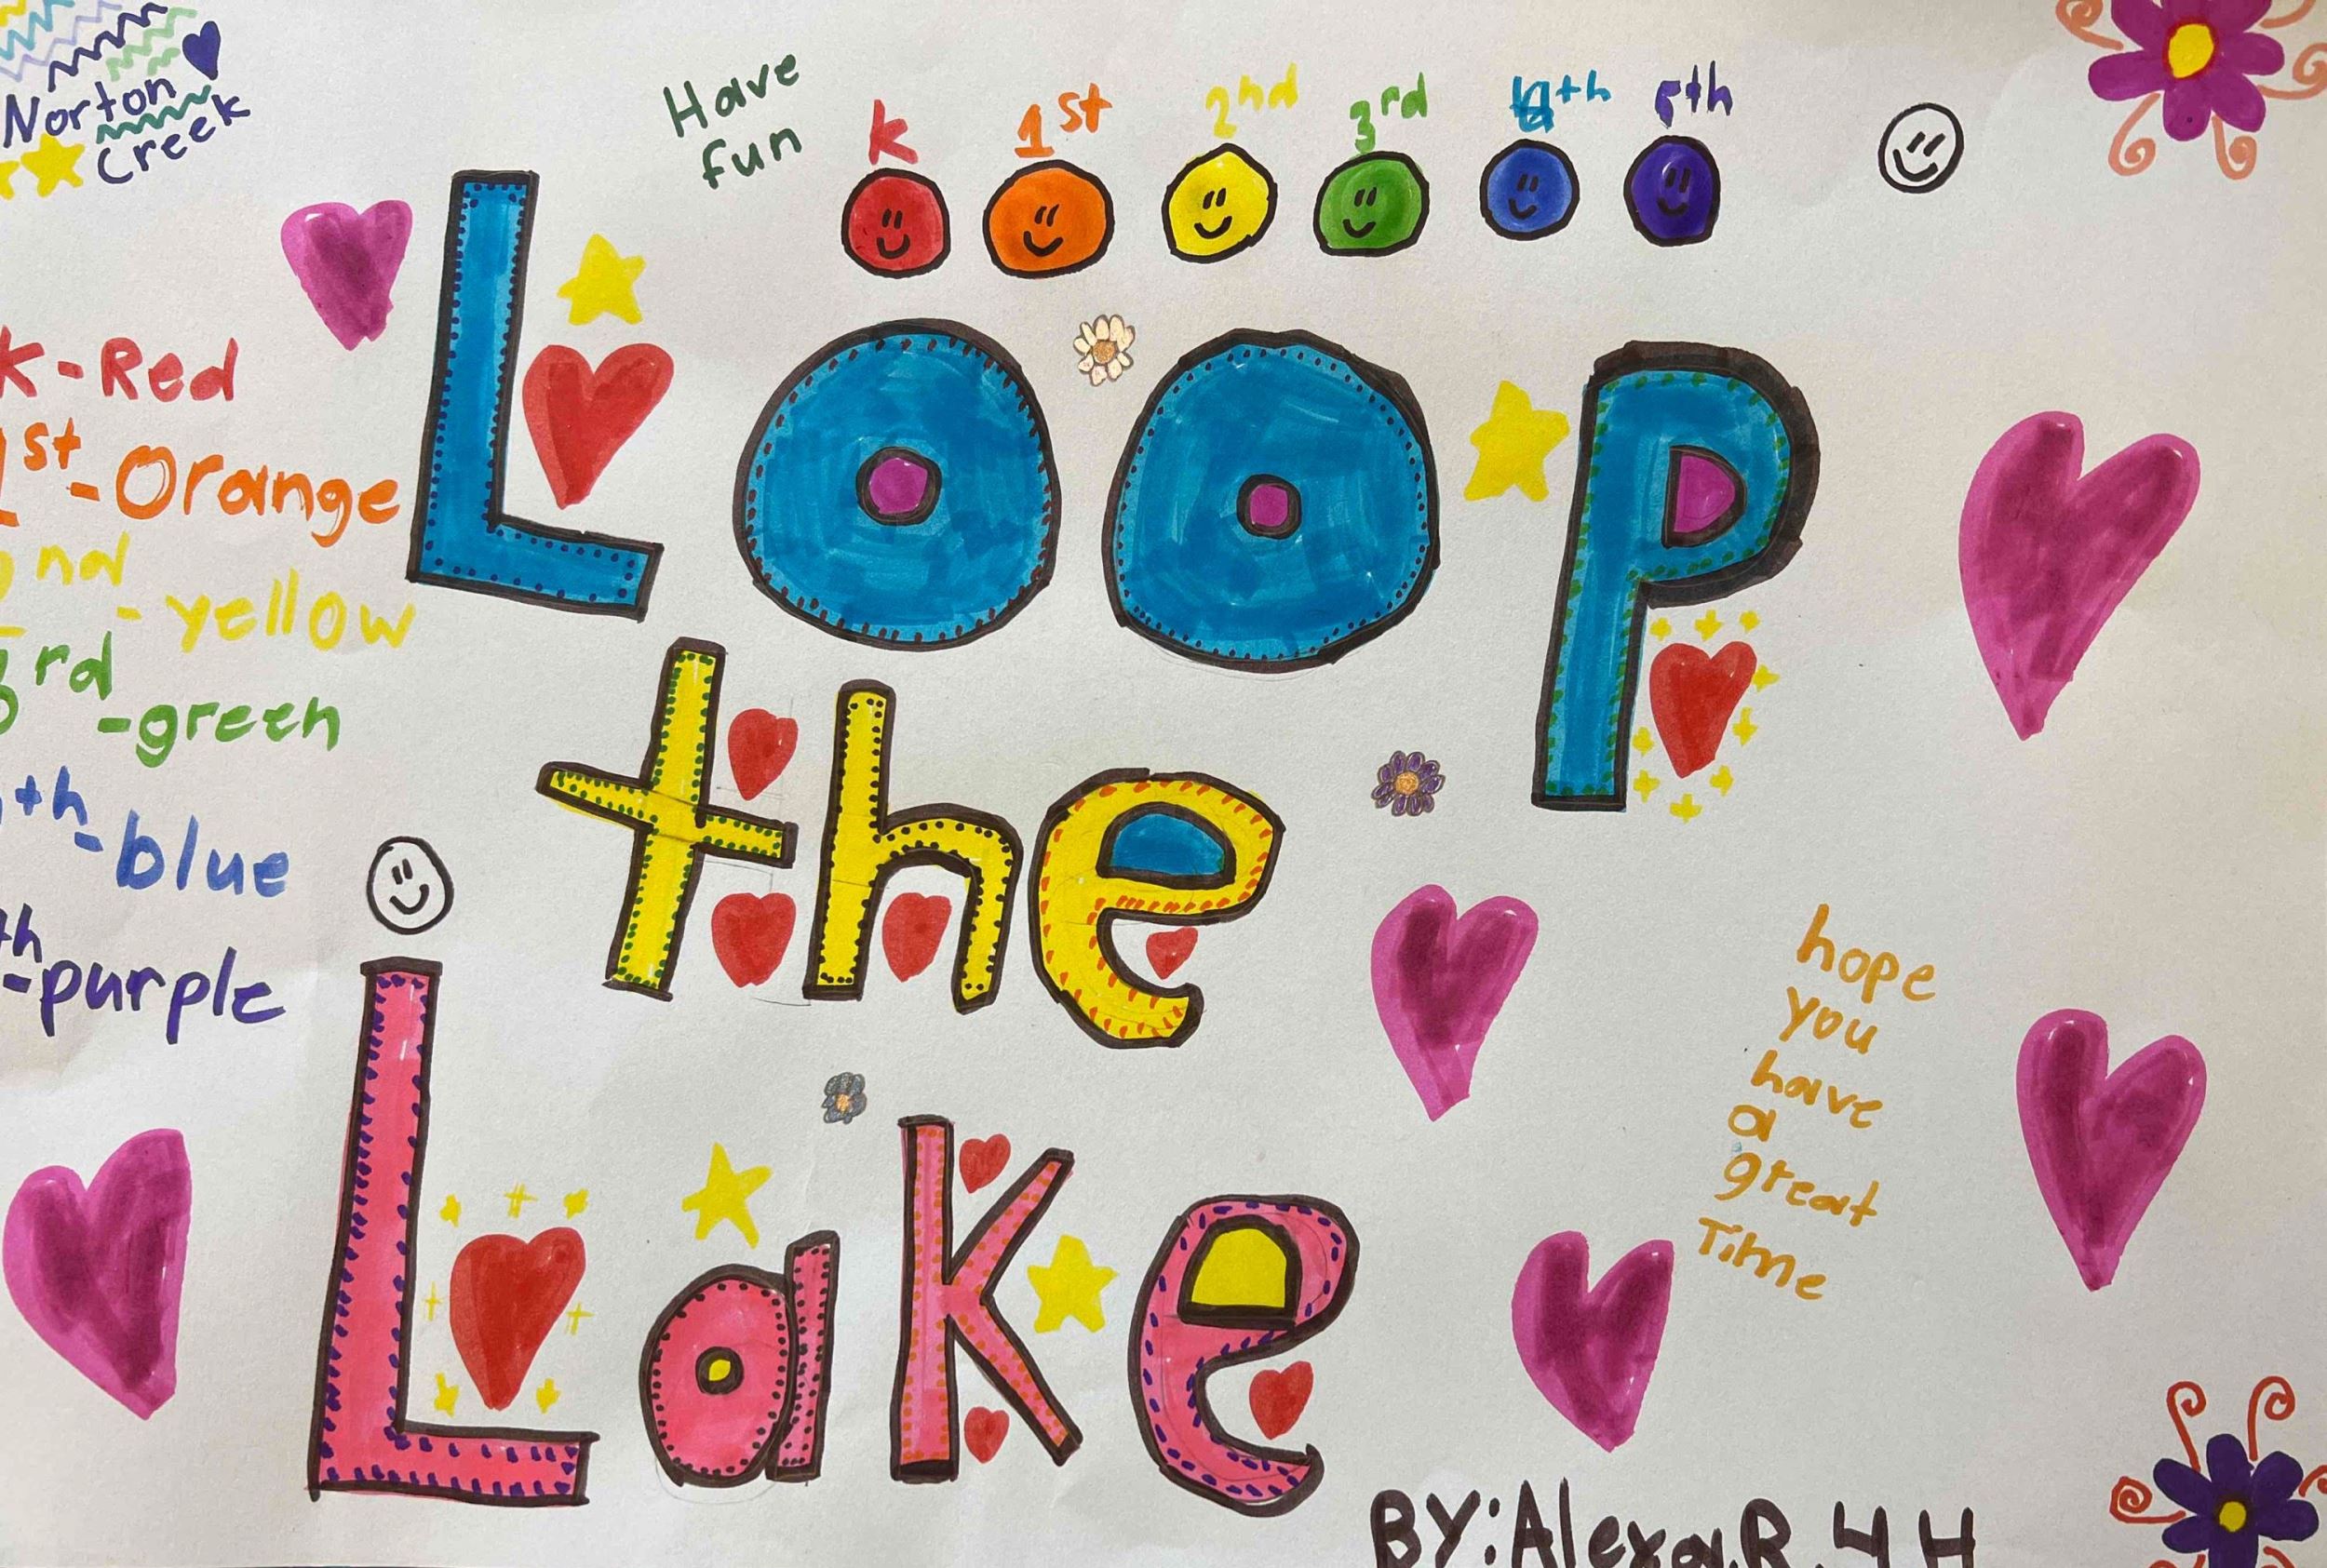 Norton
Creek
Have
fun
K 1st 2nd 3rd 4th 5th
K-Red
1st-Orange
2nd-yellow
3rd-green
4th-blue
th-purple
Loop
the
Lake
hope
you
have
a
great
Time
BY: Alexa.R. 4H